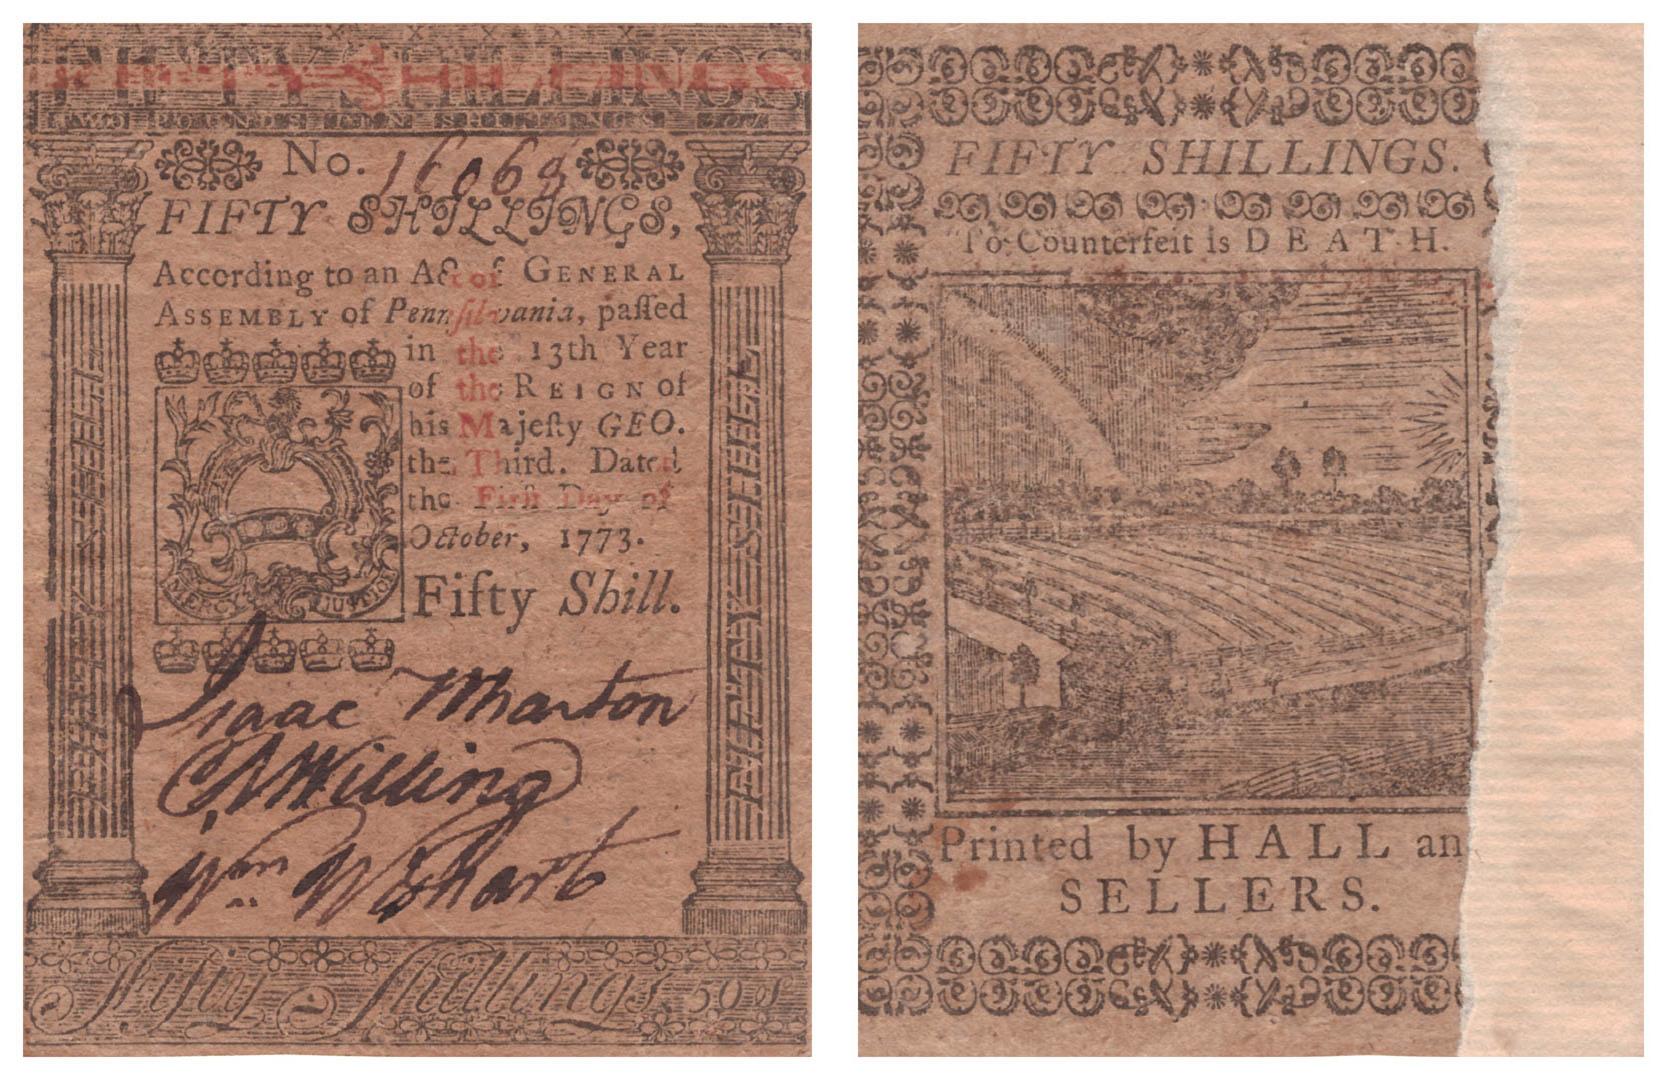 FIFTY SHILLINGS
No. 16068
FIFTY SHILLINGS,
According to an Act of GENERAL
ASSEMBLY of Pennsilvania, paſſed
in the 13th Year
of the REIGN of
his Majeſty GEO.
the Third. Dated
the Firſt Day of
October, 1773.
MERCY JUSTICE
Fifty Shill.
FIFTY SHILL
FIFTY SHILL
Isaac Wharton
Willing
Wm Wishart
Fifty Shillings. 50 s
FIFTY SHILLINGS.
To Counterfeit is DEATH.
Printed by HALL an
SELLERS.